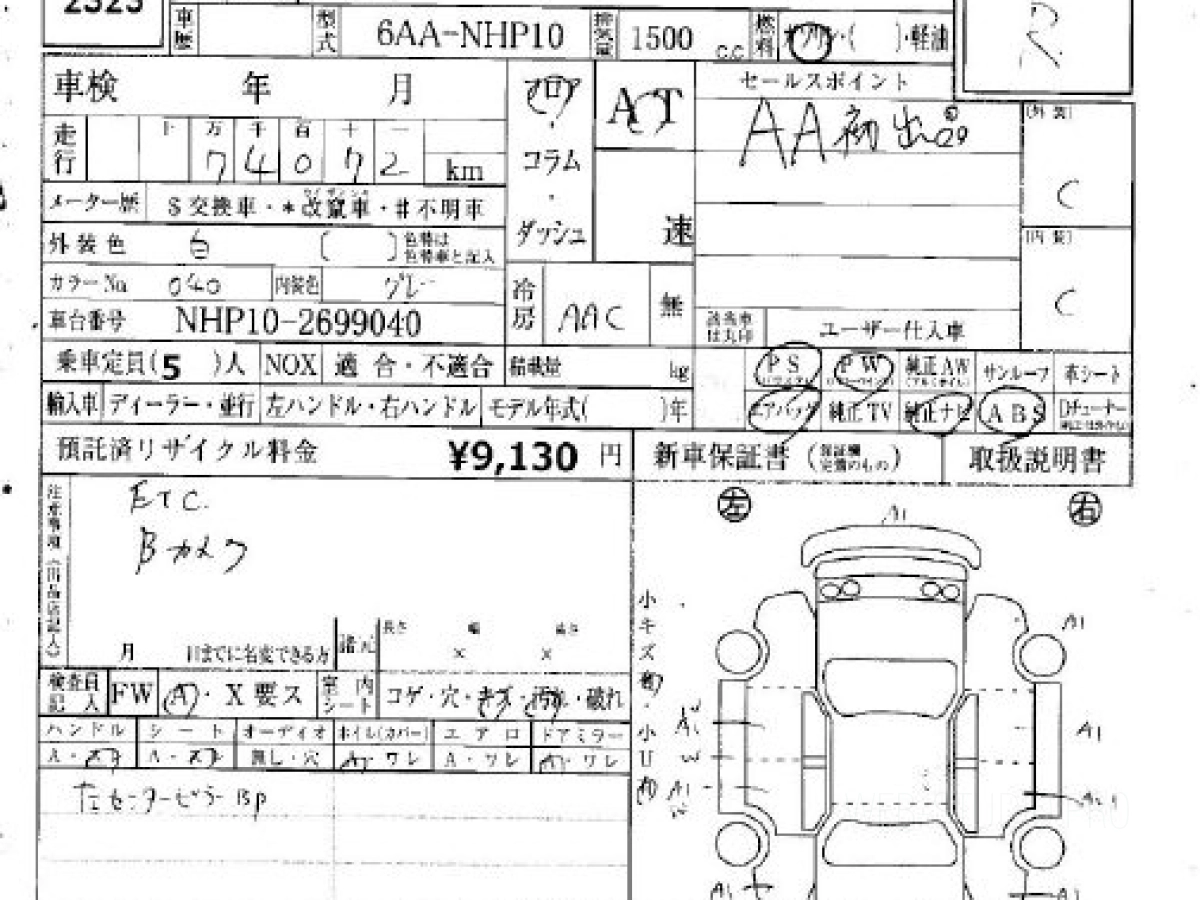 2323
車歴 型式 6AA-NHP10 排気量 1500 C.C 燃料 ガソリン・( )・軽油
車検 年 月 フロア・コラム・ダッシュ AT 速 セールスポイント
AA初出品
走行 十 万 千 百 十 一
7 4 0 7 2 km
(外装) C
メーター歴 S交換車・*改竄車・#不明車
外装色 白 ( ) 色替は色替車と記入
(内装) C
カラーNo 040 内装色 グレー 冷房 AAC 無
車台番号 NHP10-2699040
該当車は丸印 ユーザー仕入車
乗車定員(5)人 NOX 適合・不適合 積載量 kg PS PW 純正AW サンルーフ 革シート
輸入車 ディーラー・並行 左ハンドル・右ハンドル モデル年式( )年 エアバッグ 純正TV 純正ナビ ABS Dチューナー
預託済リサイクル料金 ¥9,130 円 新車保証書 (保証欄完備のもの) 取扱説明書
注意事項(出品店記入)
ETC.
Bカメラ
左 右
A1
月 日までに名変できる方 諸元 長さ × 幅 × 高さ
小キズ有・小U有
A1
検査員記入 FW A・X要ス 室内シート コゲ・穴・キズ・汚れ・破れ
ハンドル シート オーディオ ホイル(カバー) エアロ ドアミラー
A・スレ A・スレ 無し・穴 A・ワレ A・ワレ A・ワレ
A1 W A1
W
A1 W
左センターピラーBP
A1 A1